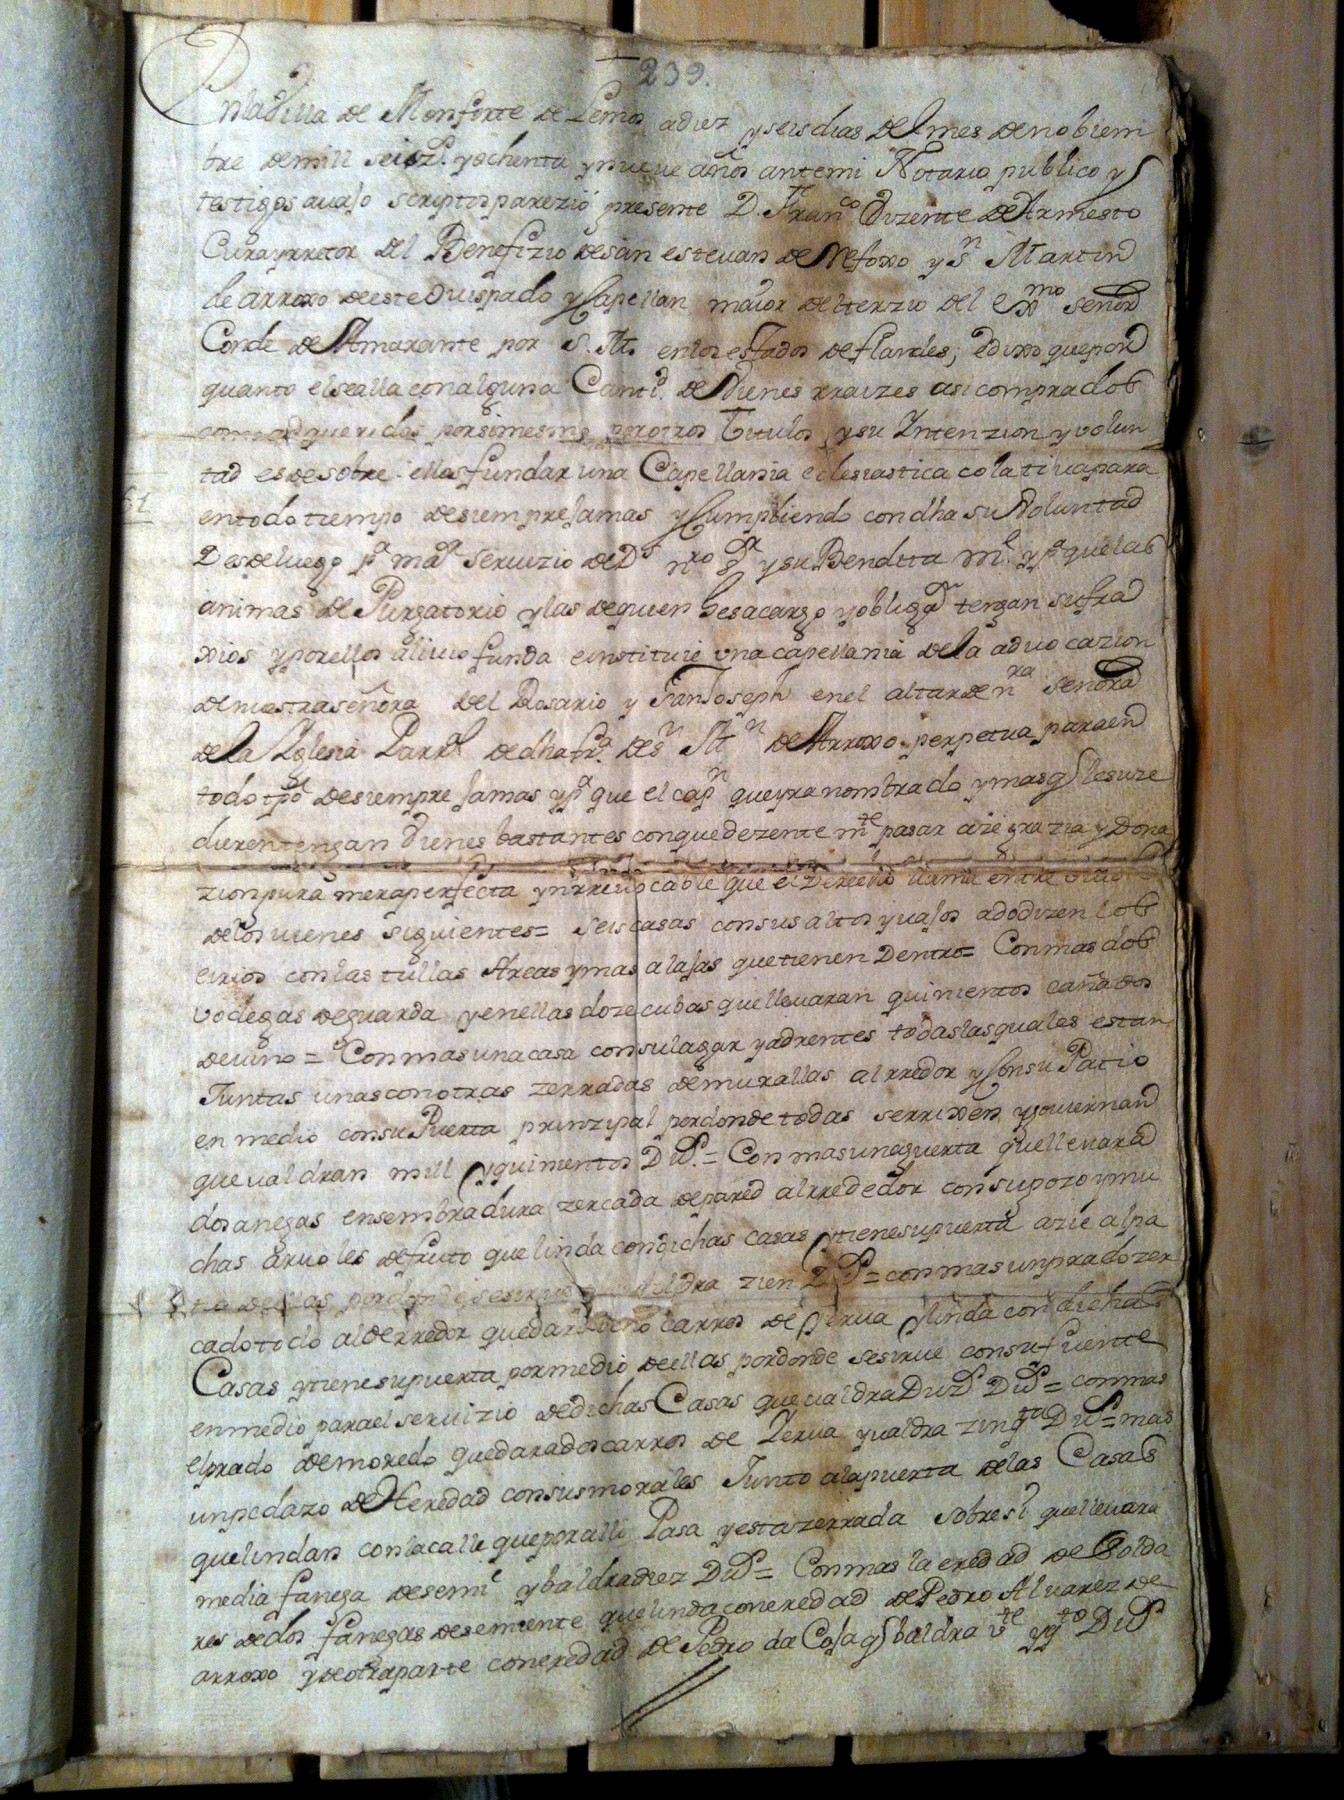 239.
En la Villa de Monforte de Lemos a diez y seis dias del mes de nobiem
bre de mill seisz.s y ochenta y nueve años ante mi Notario publico y
testigos avajo scriptos parezio presente D. Fran.co Vizente de Armesto
Cura y rretor del Benefizio de san estevan de Refoxo y s.n Martin
de arroxo de este Ovispado y Capellan maior del terzio del Ex.mo señor
Conde de Amarante por S. M. en los estados de flandes; e dixo que por
quanto el se alla con alguna Cantt.d de Vienes rraizes asi comprados
como adqueridos por si mesmo por otros Titulos y su Intenzion y volun
tad es de sobre ellos fundar una Capellania eclesiastica colativa para
en todo tiempo de siempre Jamas y Cumpliendo con dha su Voluntad
Desde luego p.a ma.r servizio de D.s nro S.r y su Bendita M.e y p.a que las
animas de Purgatorio y las de quien hes a cargo y oblig.on tengan sufra
xios y por ellos alivio funda e instituie una capellania de la advocazion
de nuestra señora del Rosario y San Joseph en el altar de nra señora
de la Yglesia Parr.l de dha fr.a de s.n M.n de Arroxo perpetua para en
todo tpo de siempre Jamas y p.a que el cap.n que yra nombrado y mas q le suze
dieren tengan Vienes bastantes con que dezente m.te pasar aze grazia y Dona
zion pura mera perfecta ynrrevocable que el Derecho llama entre vivos
de los vienes siguientes= Seis casas con sus altos y vajos adodizen los
eirios con las tullas Arcas y mas alajas que tienen Dentro= Con mas dos
vodegas de guarda y en ellas doze cubas que llevaran quinientos cañados
de vino = Con mas una casa con su lagar y adrentes todas las quales estan
Juntas unas con otras zerradas de murallas al rredor y Con su Patio
en medio con su Puerta prinzipal por donde todas se rrixen y goviernan
que valdran mill y quinientos Du.s= Con mas una guerta que llevara
dos anegas en sembradura zercada de pared al rrededor con su pozo y mu
chas arvoles de fruto que linda con dichas casas y tiene su puerta azie al pa
tio de ellas por donde se sirve que valdra zien Du.s= con mas un prado zer
cado todo al derredor que dara ocho carros de yerva y linda con dichas
Casas y tiene su puerta por medio de ellas por donde se sirve con su fuente
en medio para el servizio de dichas Casas que valdra Duz.s Du.s= con mas
el prado de moredo que dara dos carros de Yerva y valdra zinq.ta Du.s= mas
un pedazo de Heredad con sus morales Junto a la puerta de las Casas
que lindan con la calle que por alli Pasa y esta zerrada sobre si que llevara
media fanega de semi.e y baldra diez Du.s= Con mas la eredad de Solda
res de dos fanegas de semiente que linda con eredad de Pedro Alvarez de
arroxo y de otra parte con eredad de Pedro da Cosa q baldra v.te y q.to Du.s